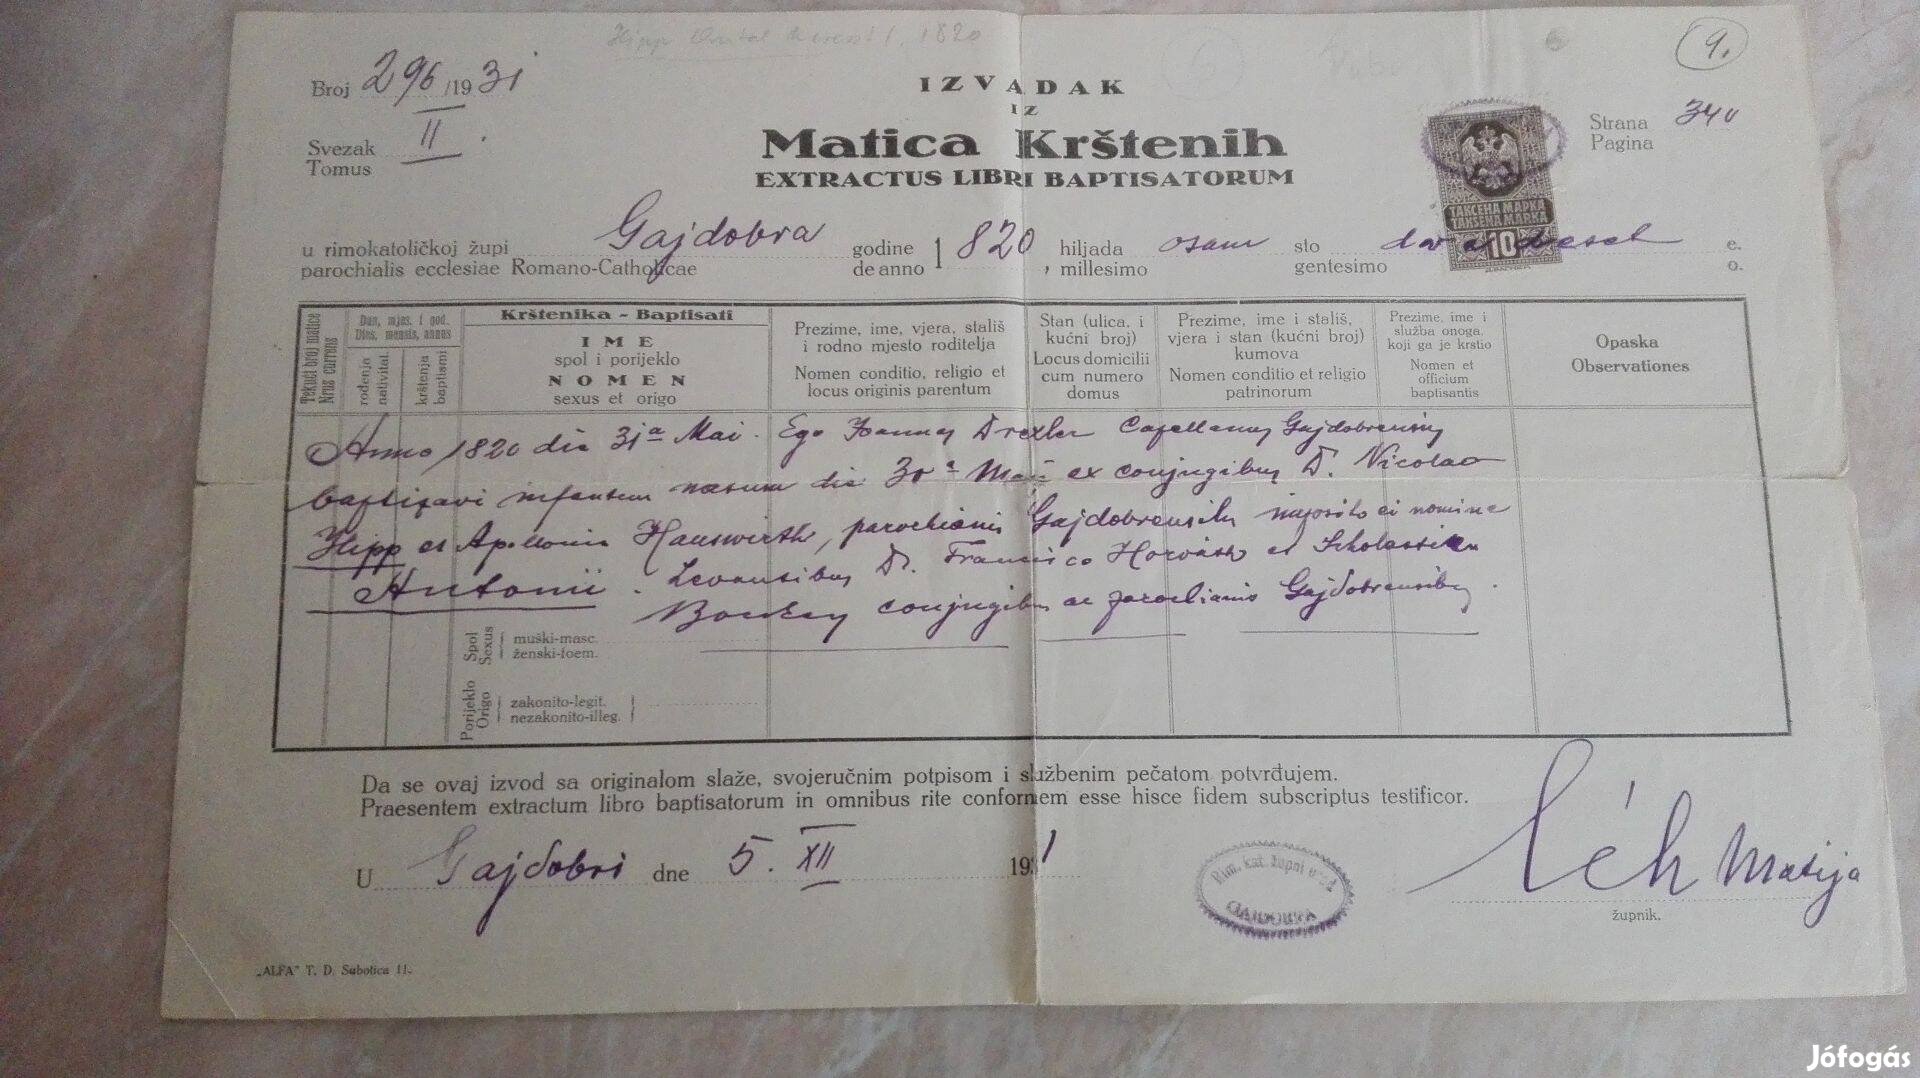 Hipp Antal kereszt l. 1820
9.
Broj 296/1931
IZVADAK
IZ
Svezak II.
Tomus
Matica Krštenih
EXTRACTUS LIBRI BAPTISATORUM
Strana 340
Pagina
ТАКСЕНА МАРКА
TAKSENA MARKA
10
u rimokatoličkoj župi Gajdobra godine 1820, hiljada osam sto dvadeset e.
parochialis ecclesiae Romano-Catholicae de anno millesimo gentesimo o.
Tekući broj matice
Nrus currens
Dan, mjes. i god.
Dies, mensis, annus
rođenja
nativitat.
krštenja
baptismi
Krštenika - Baptisati
IME
spol i porijeklo
NOMEN
sexus et origo
Prezime, ime, vjera, stališ
i rodno mjesto roditelja
Nomen conditio, religio et
locus originis parentum
Stan (ulica, i
kućni broj)
Locus domicilii
cum numero
domus
Prezime, ime i stališ,
vjera i stan (kućni broj)
kumova
Nomen conditio et religio
patrinorum
Prezime, ime i
služba onoga,
koji ga je krstio
Nomen et
officium
baptisantis
Opaska
Observationes
Anno 1820 die 31a Mai. Ego Joannes Drexler Capellanus Gajdobrensis
baptizavi infantem natum die 30a Maii ex conjugibus D. Nicolao
Hipp et Apollonia Hauswirth, parochianis Gajdobrensibus imposito ei nomine
Antonii. Levantibus D. Francisco Horváth et Scholastica
conjugibus ac parochianis Gajdobrensibus.
Spol
Sexus
muški-masc.
ženski-foem.
Porijeklo
Origo
zakonito-legit.
nezakonito-illeg.
Da se ovaj izvod sa originalom slaže, svojeručnim potpisom i službenim pečatom potvrđujem.
Praesentem extractum libro baptisatorum in omnibus rite conformem esse hisce fidem subscriptus testificor.
U Gajdobri dne 5. XII 1931
Rim. kat. župni ured
GAJDOBRA
Léh Matija
župnik.
„ALFA" T. D. Subotica 11-
Jófogás